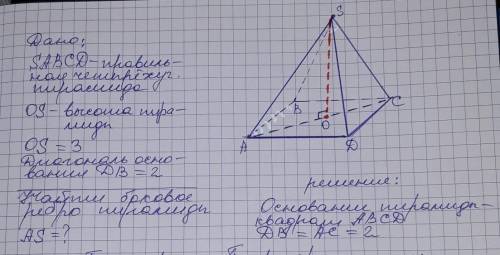 Дано:
SABCD-правиль-
ная четырёхуг.
пирамида
OS - высота пира-
миды
OS = 3
Диагональ осно-
вания DB = 2
Найти боковое
ребро пирамиды
AS = ?
S
B
C
O
A
D
решение:
Основание пирамиды-
квадрат ABCD
DB = AC = 2